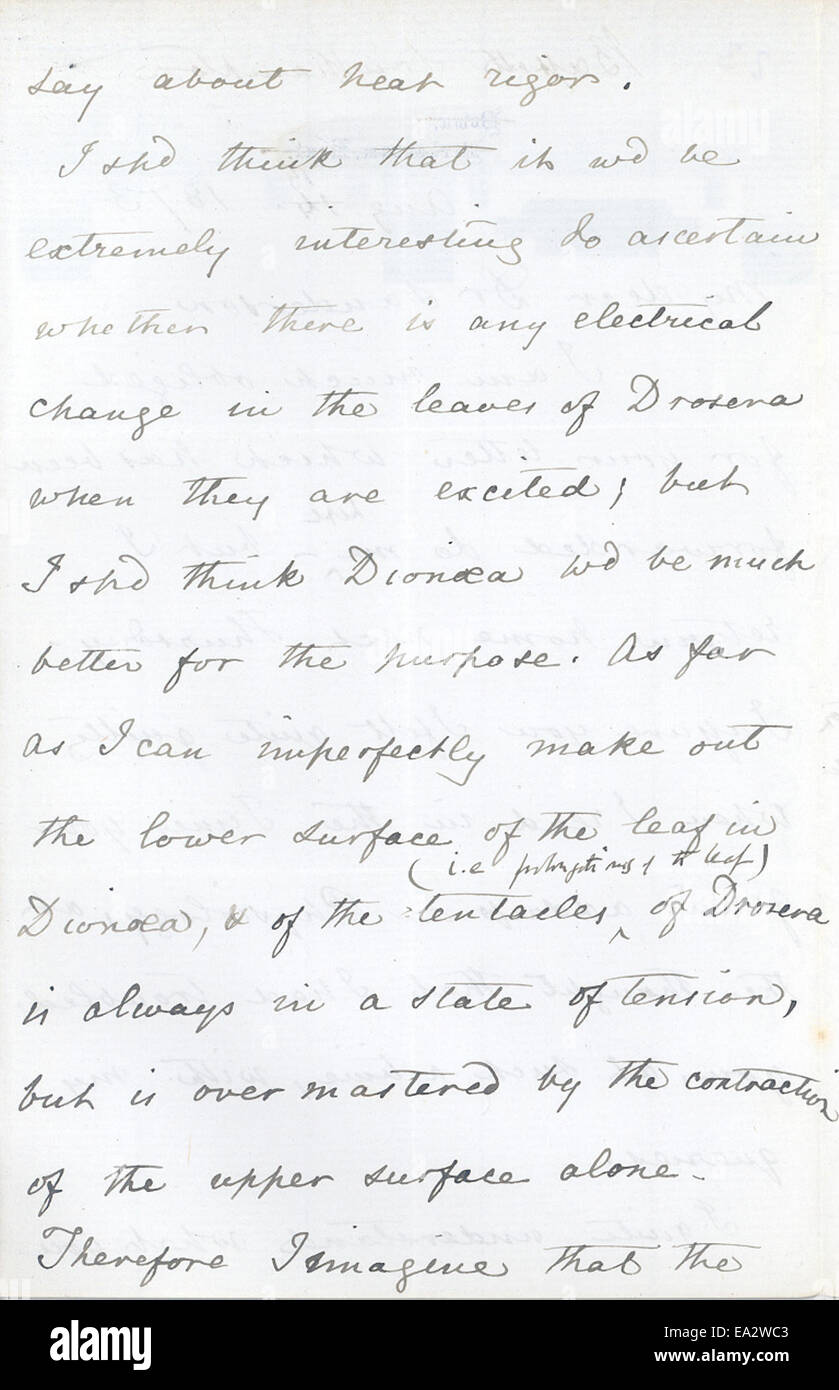 say about heat rigor.
I shd think that it wd be
extremely interesting to ascertain
whether there is any electrical
change in the leaves of Drosera
when they are excited; but
I shd think Dionæa wd be much
better for the purpose. As far
as I can imperfectly make out
the lower surface of the leaf in
(i.e prolongations of the leaf)
Dionæa, & of the tentacles ^ of Drosera
is always in a state of tension,
but is over mastered by the contraction
of the upper surface alone.
Therefore I imagine that the
alamy
Image ID: EA2WC3
www.alamy.com